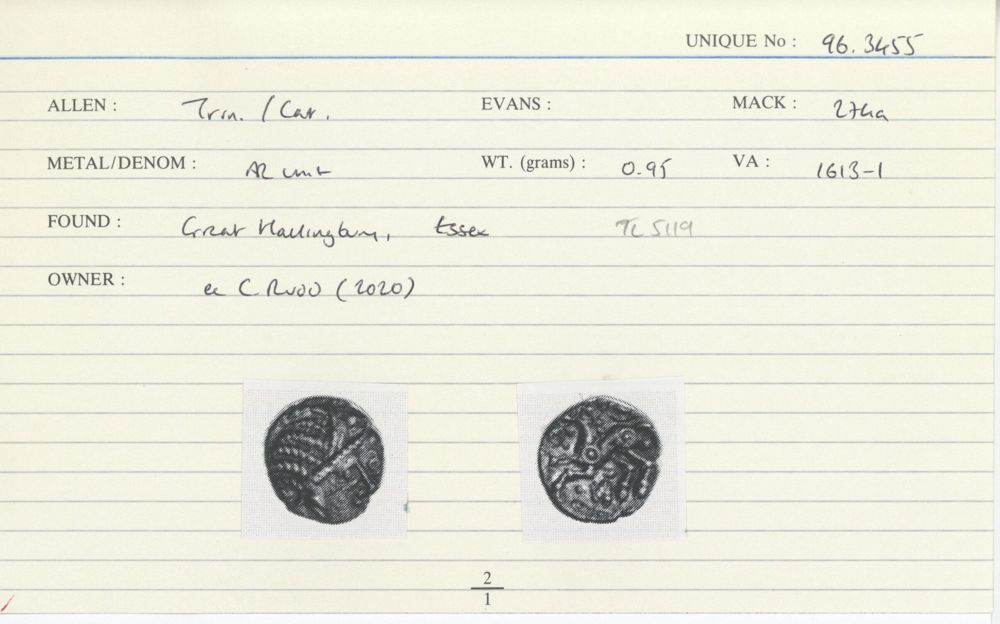 UNIQUE No : 96.3455
ALLEN : Trin. / Cat. EVANS : MACK : 274a
METAL/DENOM : AR unit WT. (grams) : 0.95 VA : 1613-1
FOUND : Great Hallingbury, Essex TL 5119
OWNER : ex C. RUDD (2020)
2
1